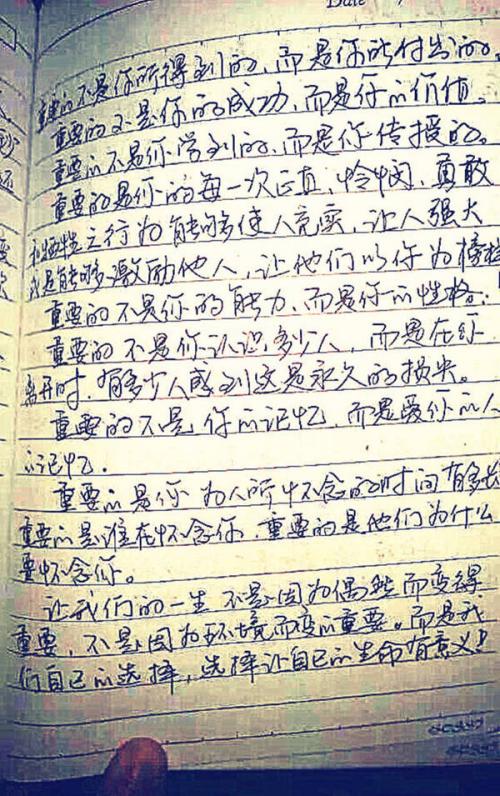 Date
重要的不是你所得到的，而是你所付出的。
重要的不是你的成功，而是你的价值。
重要的不是你学到的，而是你传授的。
重要的是你的每一次正直，怜悯，勇敢
和牺牲之行为能够使人充实，让人强大
或是能够激励他人，让他们以你为榜样
重要的不是你的能力，而是你的性格.
重要的不是你认识多少人，而是在你
离开时，有多少人感到这是永久的损失。
重要的不是你的记忆，而是爱你的人
的记忆.
重要的是你为人所怀念的时间有多长
重要的是谁在怀念你，重要的是他们为什么
要怀念你。
让我们的一生不是因为偶然而变得
重要，不是因为环境而变的重要。而是我
们自己的选择，选择让自己的生命有意义！